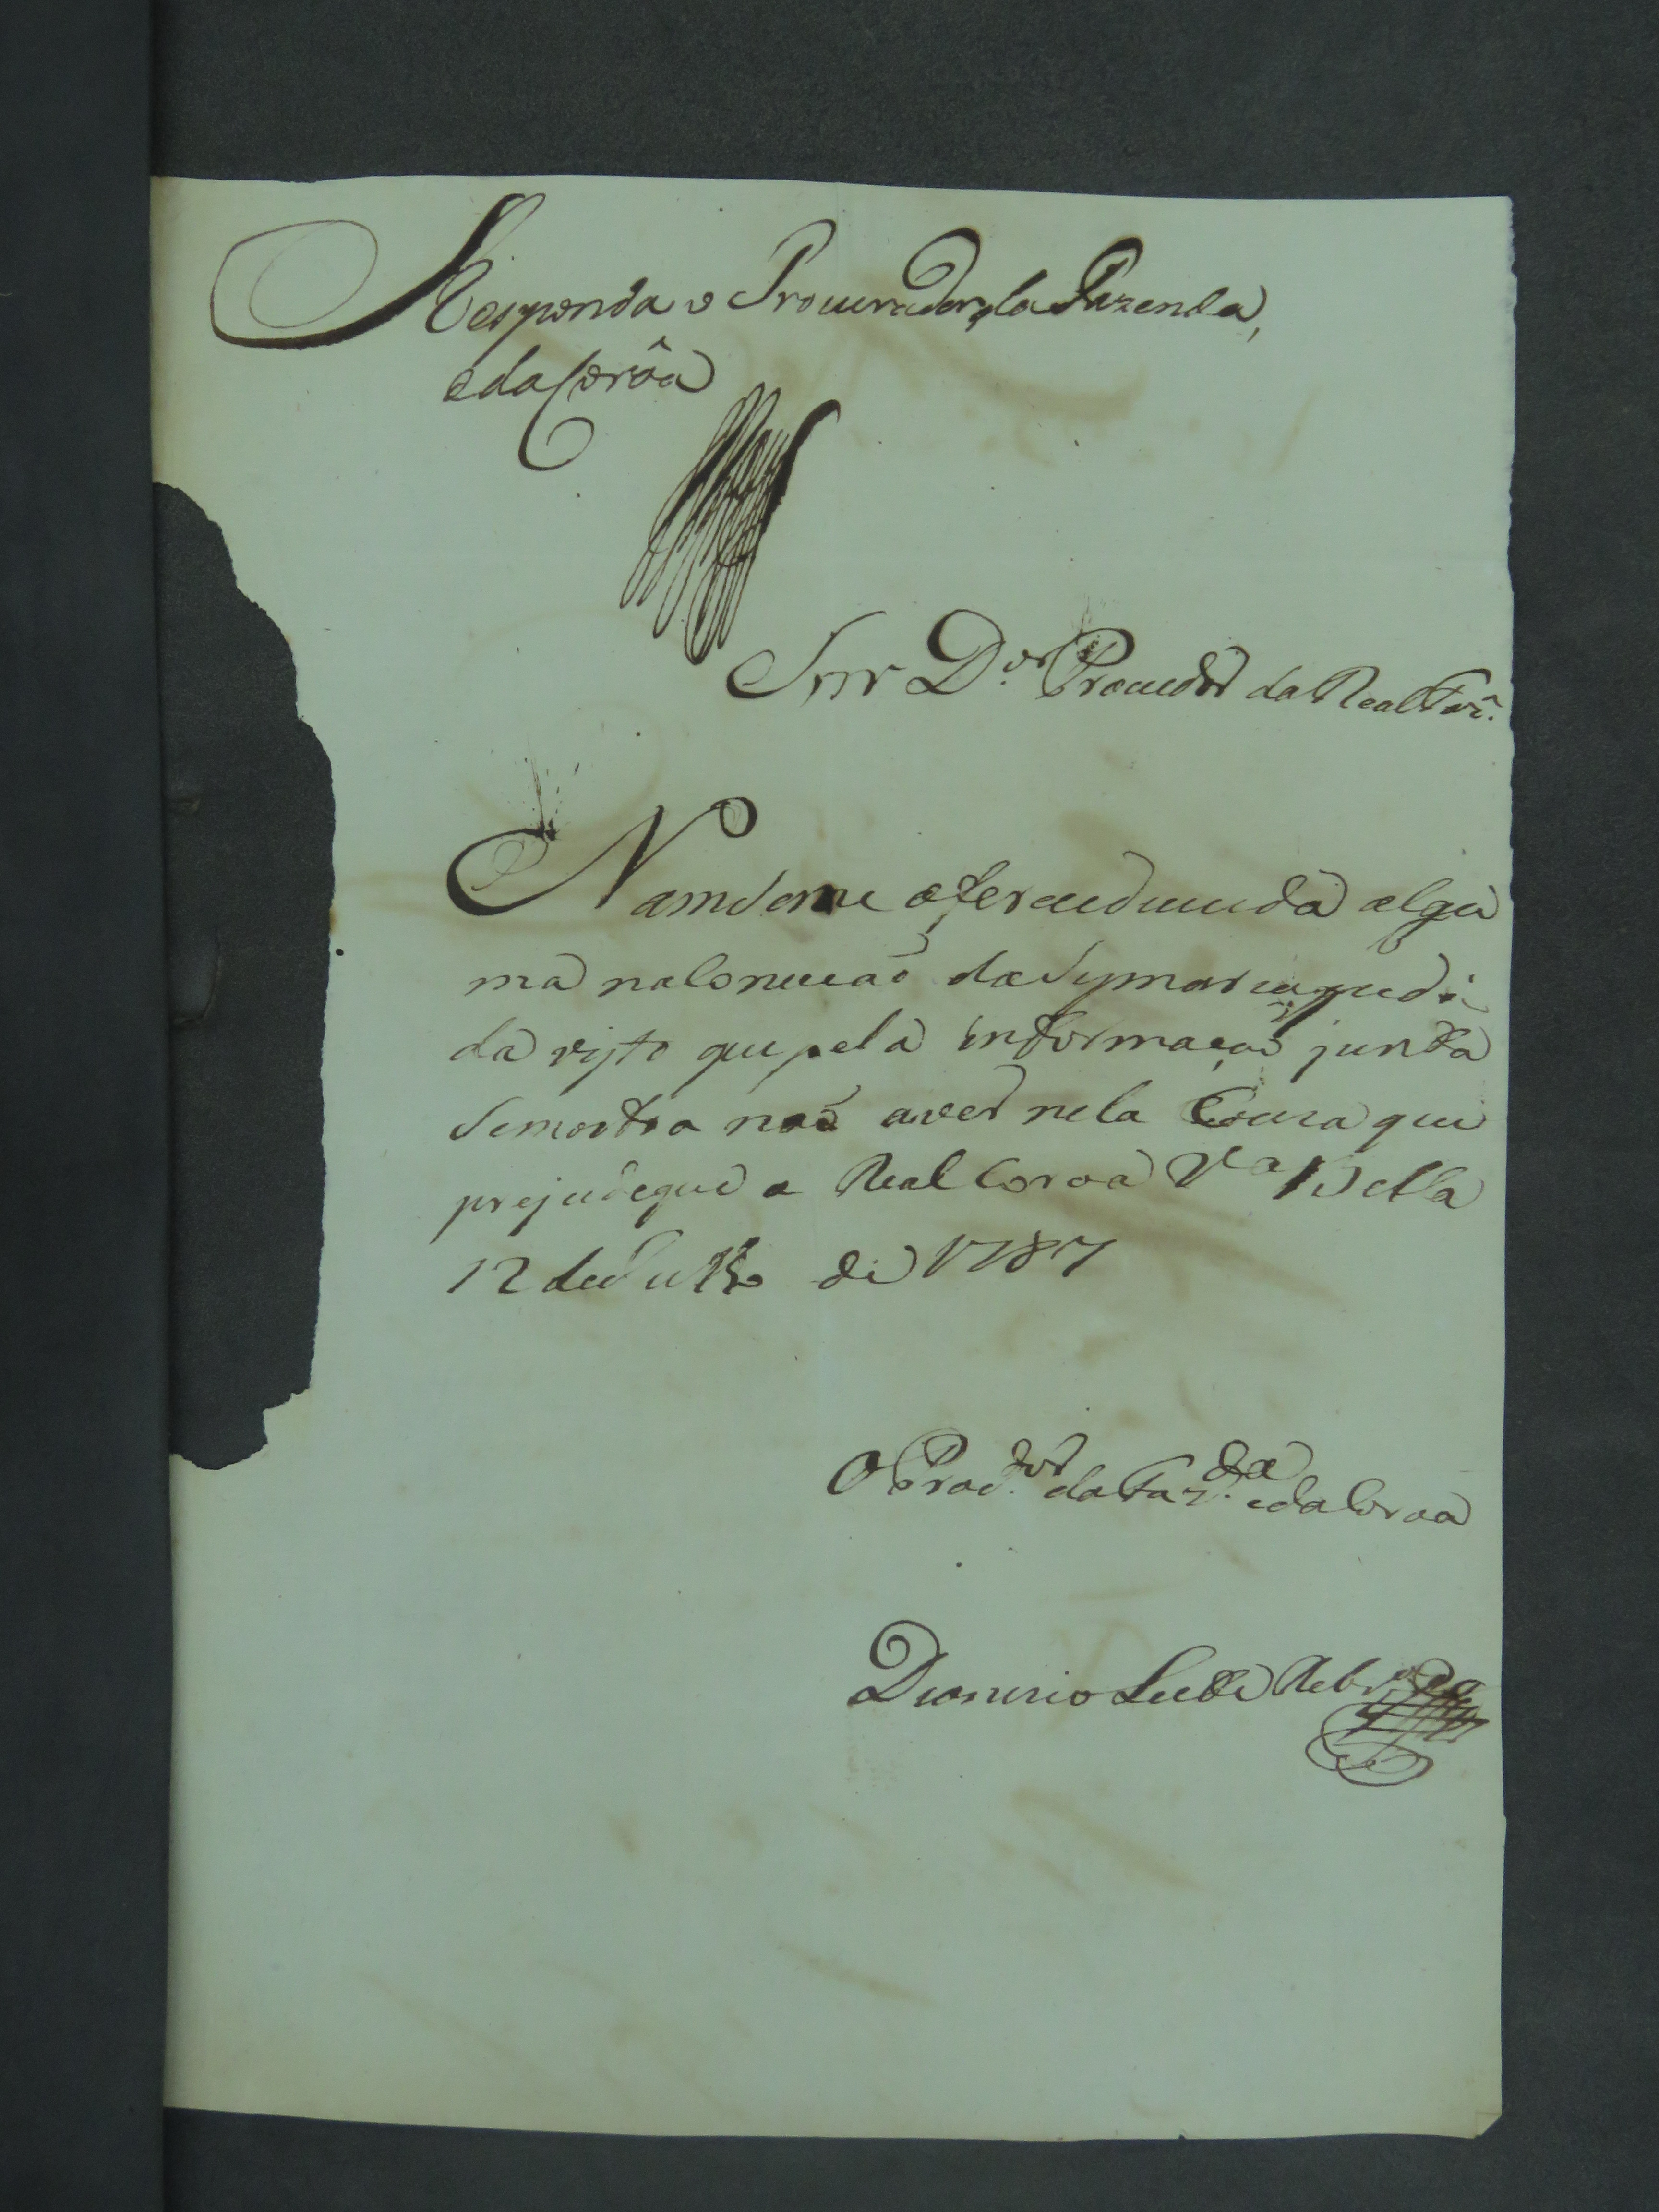 Responda o Procurador da Fazenda,
e da Corôa
Snr D.or Proveedor da Real Faz.
Nam se me oferece duuida algu
ma na Conceçaõ da Sysmaria pedi
da visto que pela informaçaõ junta
semostra naõ aver nela Couza que
prejudeque a Real Coroa V.a Bella
12 de Julho de 1787
O Procd.or da Faz.da e da Coroa
Dionizio Leite